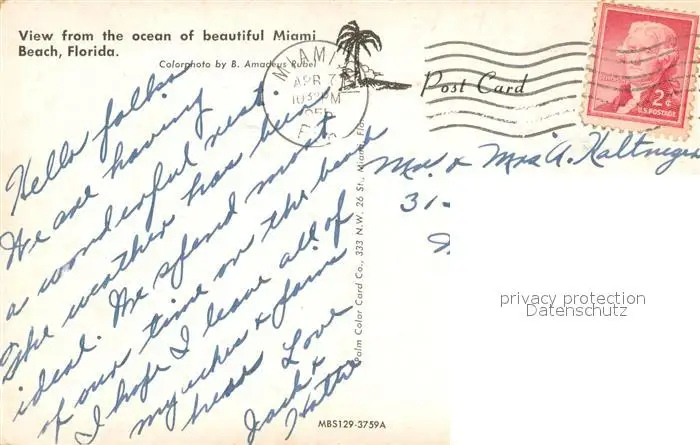 View from the ocean of beautiful Miami
Beach, Florida.
Colorphoto by B. Amadeus Rubel
MIAMI
APR 7
1030 PM
Post Card
2¢
U.S. POSTAGE
Hello folks
We are having
a wonderful rest.
The weather has been
ideal. We spend most
of our time on the beach
I hope I leave all of
my aches & pains
here Love
Jack &
Hattie
Mr. & Mrs A.
31
Palm Color Card Co., 333 N.W. 26 St., Miami, Fla.
MBS129-3759A
privacy protection
Datenschutz